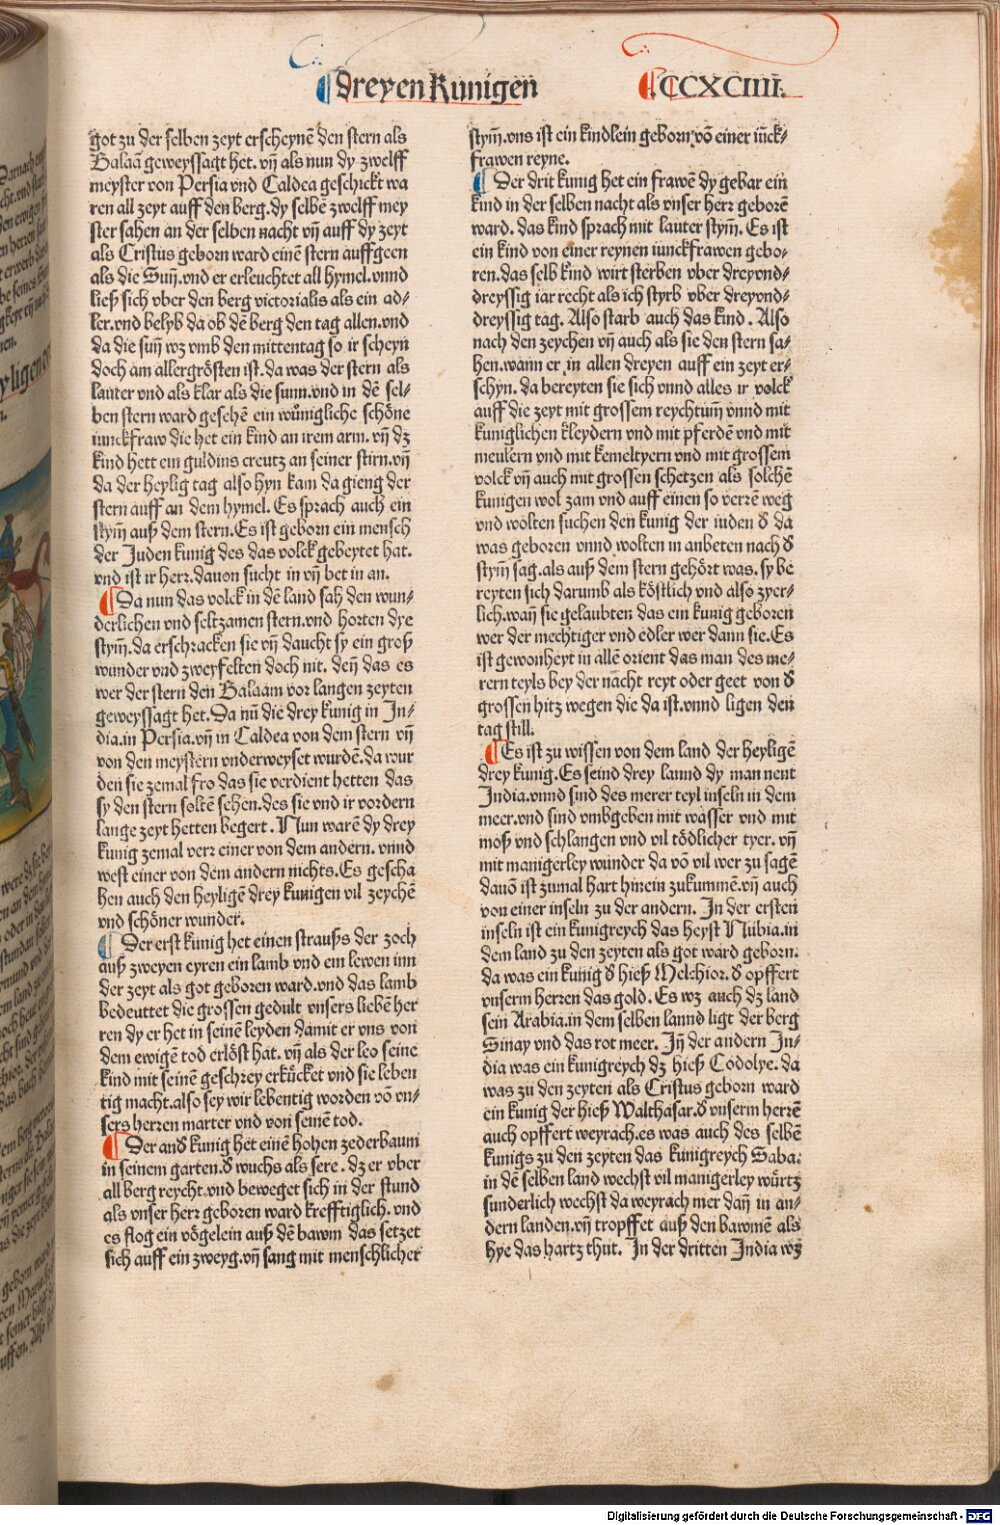 dreyen Kunigen
CCXCIIII.
got zu der selben zeyt erscheynē den stern als
Balaā geweyssagt het. vn̄ als nun dy zwelff
meyster von Persia vnd Caldea geschickt wa
ren all zeyt auff den berg. dy selbē zwelff mey
ster sahen an der selben nacht vn̄ auff dy zeyt
als Cristus geborn ward einē stern auffgeen
als die Sun̄. vnd er erleuchtet all hymel. vnnd
ließ sich vber den berg victorialis als ein ad⸗
ler. vnd belyb da ob dē berg den tag allen. vnd
da die sun̄ wz vmb den mittentag so ir scheyn
doch am allergrösten ist. da was der stern als
lauter vnd als klar als die sunn. vnd in dē sel⸗
ben stern ward gesehē ein wünigliche schöne
iunckfraw die het ein kind an irem arm. vn̄ dz
kind hett ein guldins creutz an seiner stirn. vn̄
da der heylig tag also hyn kam da gieng der
stern auff an dem hymel. Es sprach auch ein
stym̄ auß dem stern. Es ist geborn ein mensch
der Juden kunig des das volck gebeytet hat.
vnd ist ir herr. dauon sucht in vn̄ bet in an.
Da nun das volck in dē land sah den wun⸗
derlichen vnd seltzamen stern. vnd horten dye
stym̄. da erschracken sie vn̄ daucht sy ein groß
wunder vnd zweyfelten doch nit. den̄ das es
wer der stern den Balaam vor langen zeyten
geweyssagt het. Da nū die drey kunig in In⸗
dia. in Persia. vn̄ in Caldea von dem stern vn̄
von den meystern vnderweyset wurdē. da wur
den sie zemal fro das sie verdient hetten das
sy den stern soltē sehen. des sie vnd ir vordern
lange zeyt hetten begert. Nun warē dy drey
kunig zemal verr einer von dem andern. vnnd
west einer von dem andern nichts. Es gescha
hen auch den heyligē drey kunigen vil zeychē
vnd schöner wunder.
Der erst kunig het einen strauſs der zoch
auß zweyen eyren ein lamb vnd ein lewen inn
der zeyt als got geboren ward. vnd das lamb
bedeuttet die grossen gedult vnsers liebē her
ren dy er het in seinē leyden damit er vns von
dem ewigē tod erlöst hat. vn̄ als der leo seine
kind mit seinē geschrey erkücket vnd sie leben
tig macht. also sey wir lebentig worden vō vn⸗
sers herren marter vnd von seinē tod.
Der and kunig het einē hohen zederbaum
in seinem garten. d wuchs als sere. dz er vber
all berg reycht. vnd beweget sich in der stund
als vnser herr geboren ward krefftiglich. vnd
es flog ein vögelein auß dē bawm das setzet
sich auff ein zweyg. vn̄ sang mit menschlicher
stym̄. vns ist ein kindlein geborn vō einer iūck⸗
frawen reyne.
Der drit kunig het ein frawē dy gebar ein
kind in der selben nacht als vnser herr geborē
ward. das kind sprach mit lauter stym̄. Es ist
ein kind von einer reynen iunckfrawen gebo⸗
ren. das selb kind wirt sterben vber dreyvnd⸗
dreyssig iar recht als ich styrb vber dreyvnd⸗
dreyssig tag. Also starb auch das kind. Also
nach den zeychen vn̄ auch als sie den stern sa⸗
hen. wann er in allen dreyen auff ein zeyt er⸗
schyn. da bereyten sie sich vnnd alles ir volck
auff die zeyt mit grossem reychtum̄ vnnd mit
kuniglichen kleydern vnd mit pferdē vnd mit
meulern vnd mit kemeltyern vnd mit grossem
volck vn̄ auch mit grossen schetzen als solchē
kunigen wol zam vnd auff einen so verrē weg
vnd wolten suchen den kunig der iuden d da
was geboren vnnd wolten in anbeten nach d
stym̄ sag. als auß dem stern gehört was. sy be
reyten sich darumb als köstlich vnd also zyer⸗
lich. wan̄ sie gelaubten das ein kunig geboren
wer der mechtiger vnd edler wer dann sie. Es
ist gewonheyt in allē orient das man des me⸗
rern teyls bey der nacht reyt oder geet von d
grossen hitz wegen die da ist. vnnd ligen den
tag still.
Es ist zu wissen von dem land der heyligē
drey kunig. Es seind drey lannd dy man nent
India. vnnd sind des merer teyl inseln in dem
meer. vnd sind vmbgeben mit wasser vnd mit
moß vnd schlangen vnd vil tödlicher tyer. vn̄
mit manigerley wunder da vō vil wer zu sagē
dauō ist zumal hart hinein zukummē. vn̄ auch
von einer inseln zu der andern. In der ersten
inseln ist ein kunigreych das heyst Nubia. in
dem land zu den zeyten als got ward geborn.
da was ein kunig d hieß Melchior. d opffert
vnserm herren das gold. Es wz auch dz land
sein Arabia. in dem selben lannd ligt der berg
Sinay vnd das rot meer. In̄ der andern In⸗
dia was ein kunigreych dz hieß Codolye. da
was zu den zeyten als Cristus geborn ward
ein kunig der hieß Walthasar. d vnserm herrē
auch opffert weyrach. es was auch des selbē
kunigs zu den zeyten das kunigreych Saba.
in dē selben land wechst vil manigerley würtz
sunderlich wechst da weyrach mer dan̄ in an⸗
dern landen. vn̄ tropffet auß den bawmē als
hye das hartz thut. In der dritten India wz
Digitalisierung gefördert durch die Deutsche Forschungsgemeinschaft - DFG